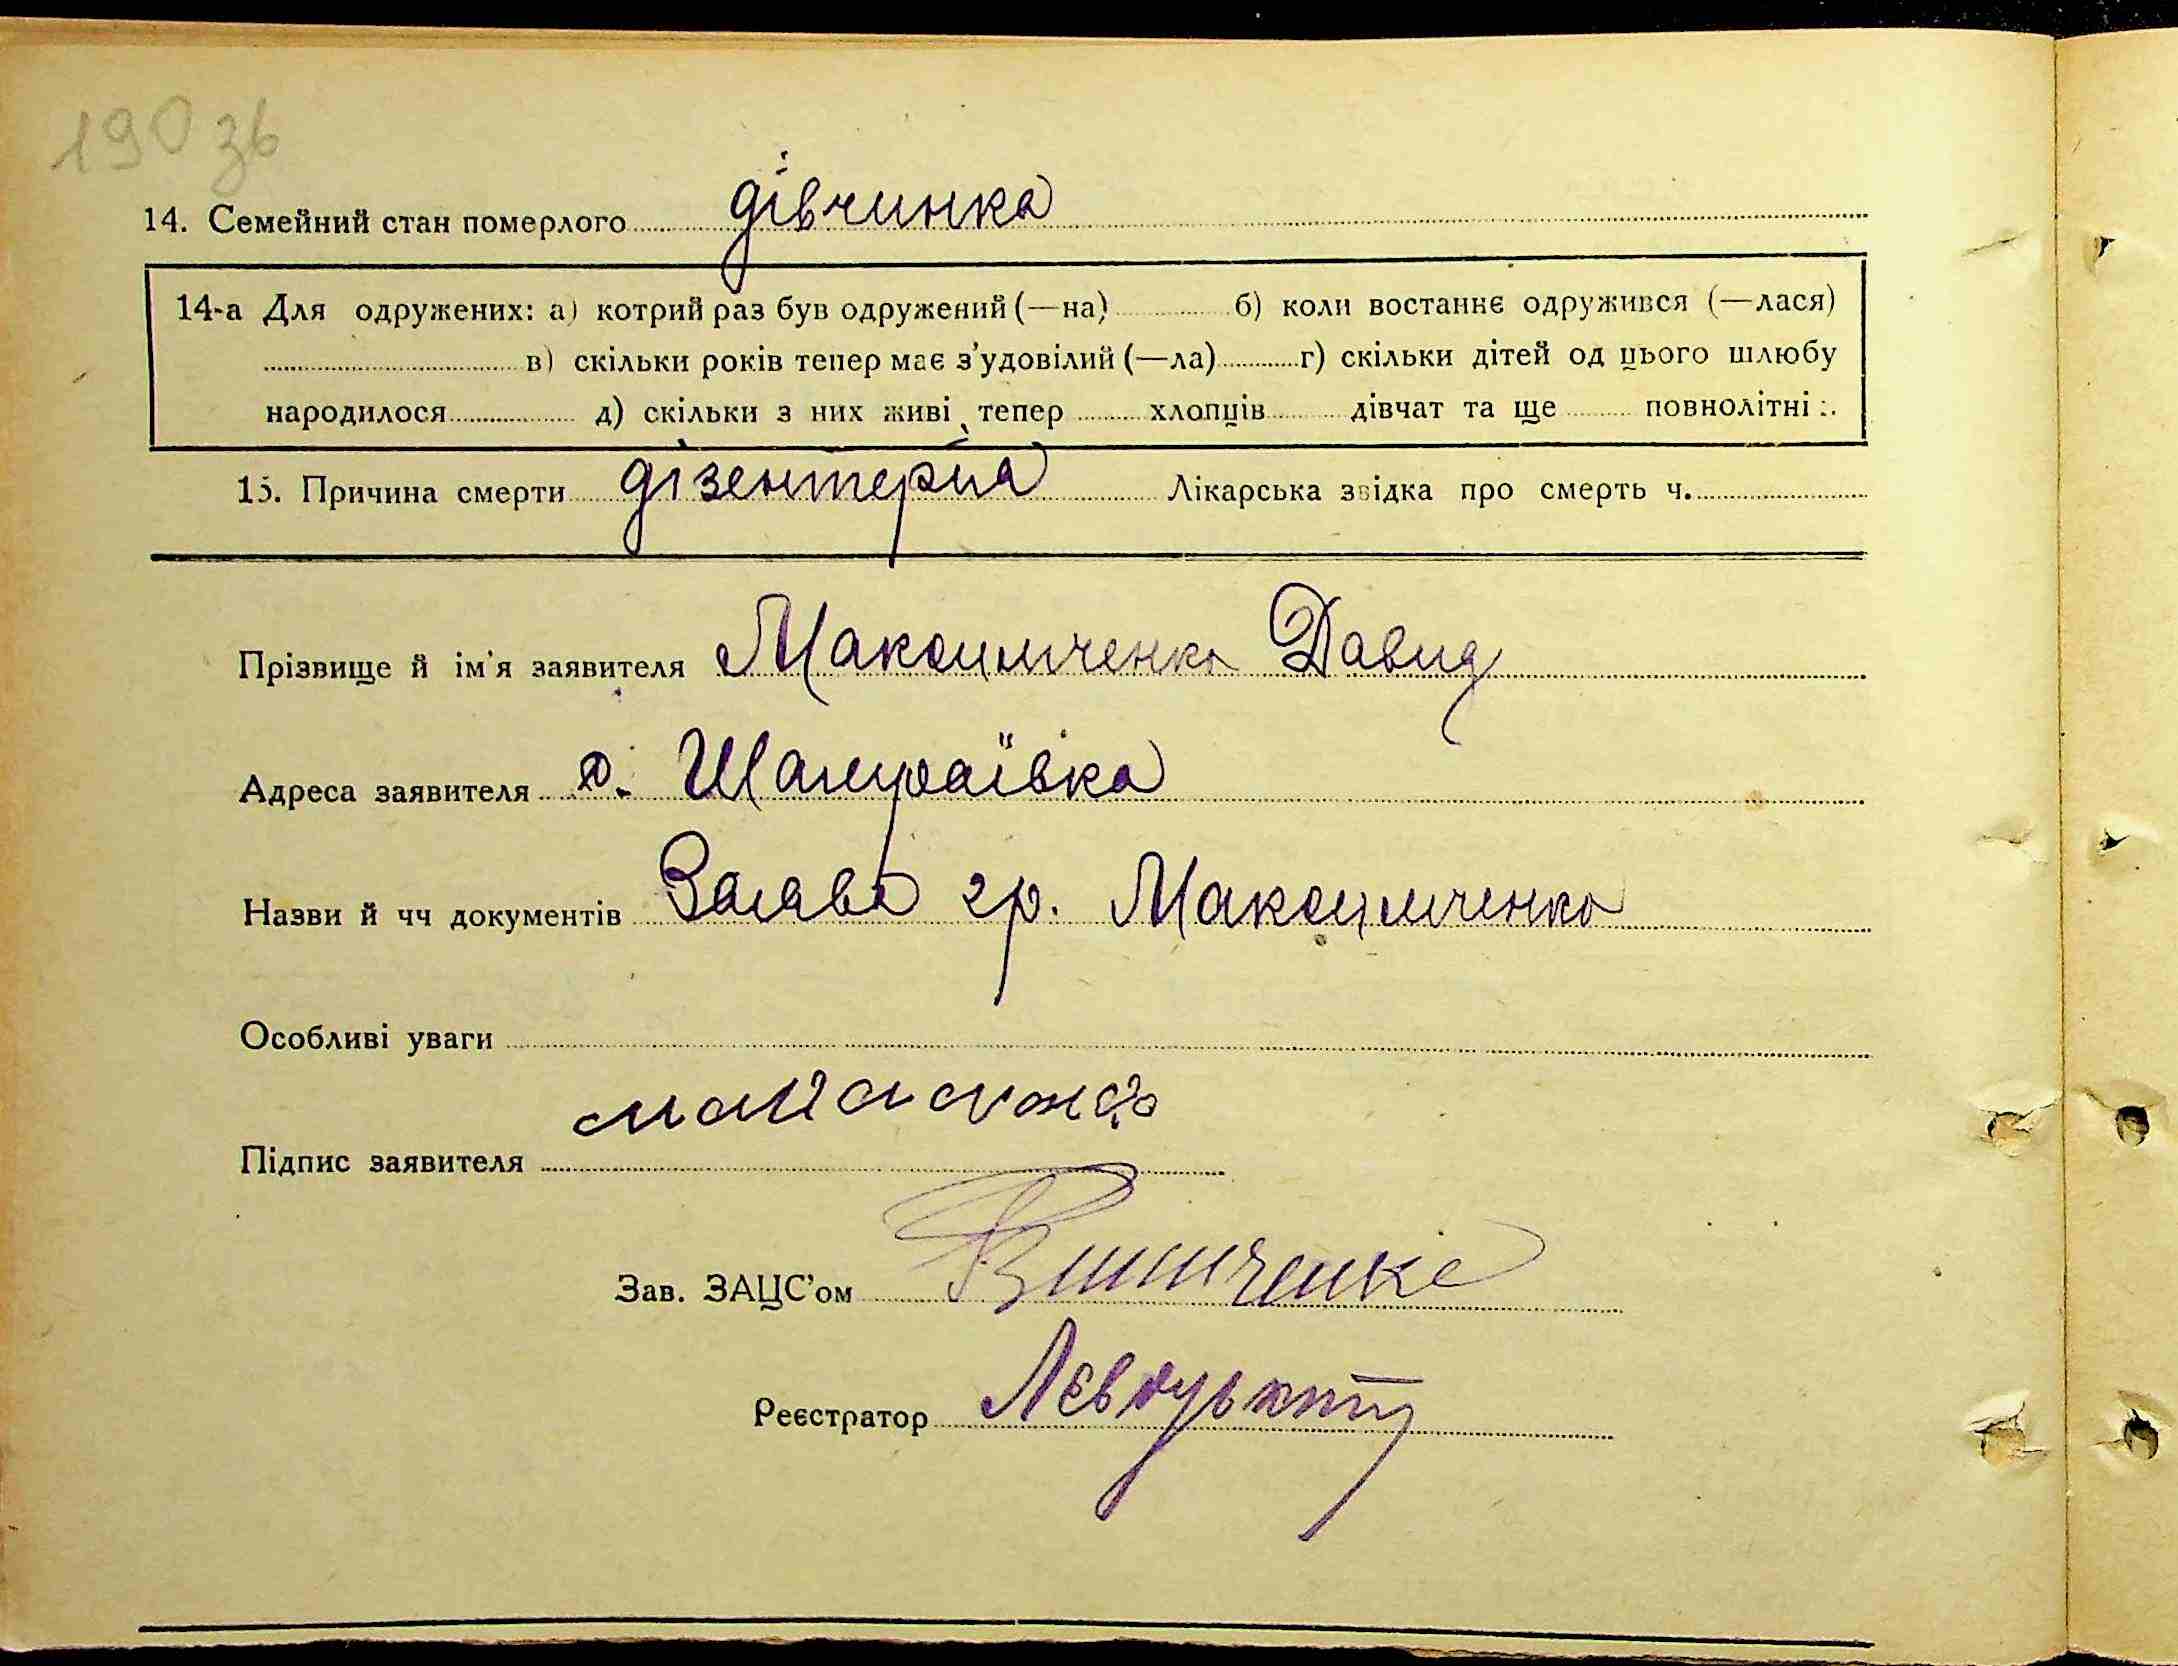 190 зв
14. Семейний стан померлого дівчинка
14-а Для одружених: а) котрий раз був одружений (—на) б) коли востаннє одружився (—лася)
в) скільки років тепер має з'удовілий (—ла) г) скільки дітей од цього шлюбу
народилося д) скільки з них живі тепер хлопців дівчат та ще повнолітні
15. Причина смерти дізентерия Лікарська звідка про смерть ч.
Прізвище й ім'я заявителя Максимченко Давид
Адреса заявителя с. Шамраївка
Назви й чч документів Заява гр. Максимченко
Особливі уваги
Підпис заявителя
Зав. ЗАЦС'ом
Реєстратор